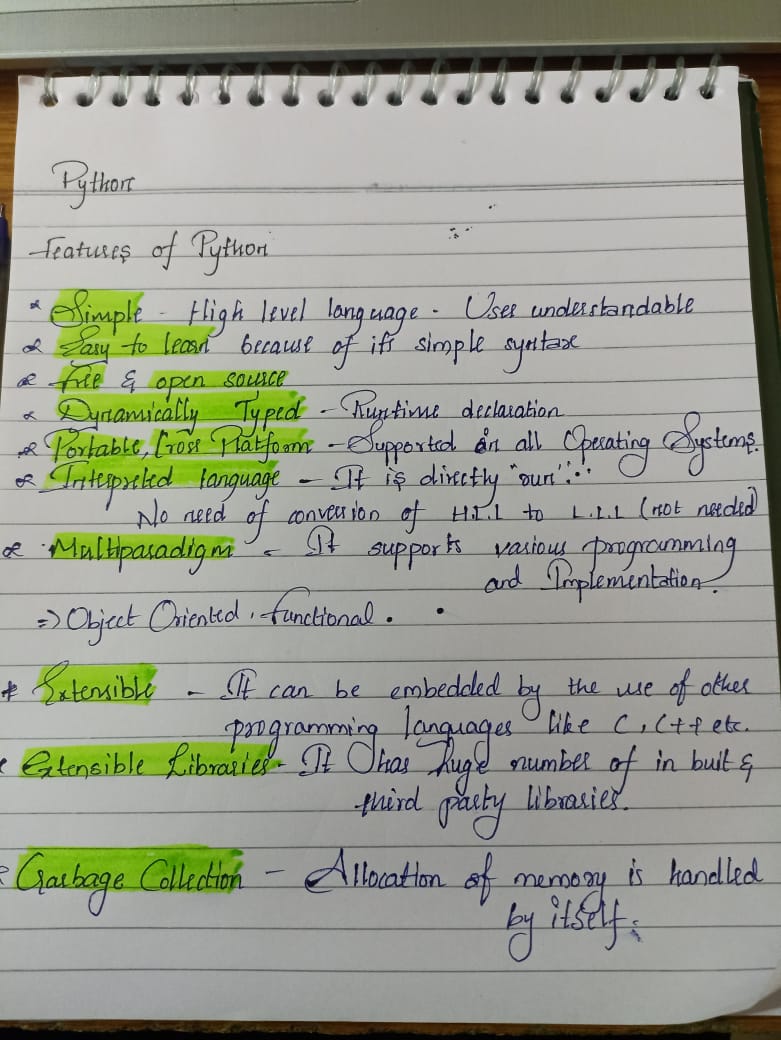 Python
Features of Python
* Simple - High level language - User understandable
* Easy to learn because of its simple syntax
* Free & open source
* Dynamically Typed - Runtime declaration
* Portable, Cross Platform - Supported in all Operating Systems.
* Interpreted language - It is directly "run"...
No need of conversion of H.L.L to L.L.L (not needed)
* Multiparadigm - It supports various programming
and Implementation.
=> Object Oriented, functional.
* Extensible - It can be embedded by the use of other
programming languages like C, C++ etc.
* Extensible Libraries - It has huge number of in buit &
third party libraries.
* Garbage Collection - Allocation of memory is handled
by itself.